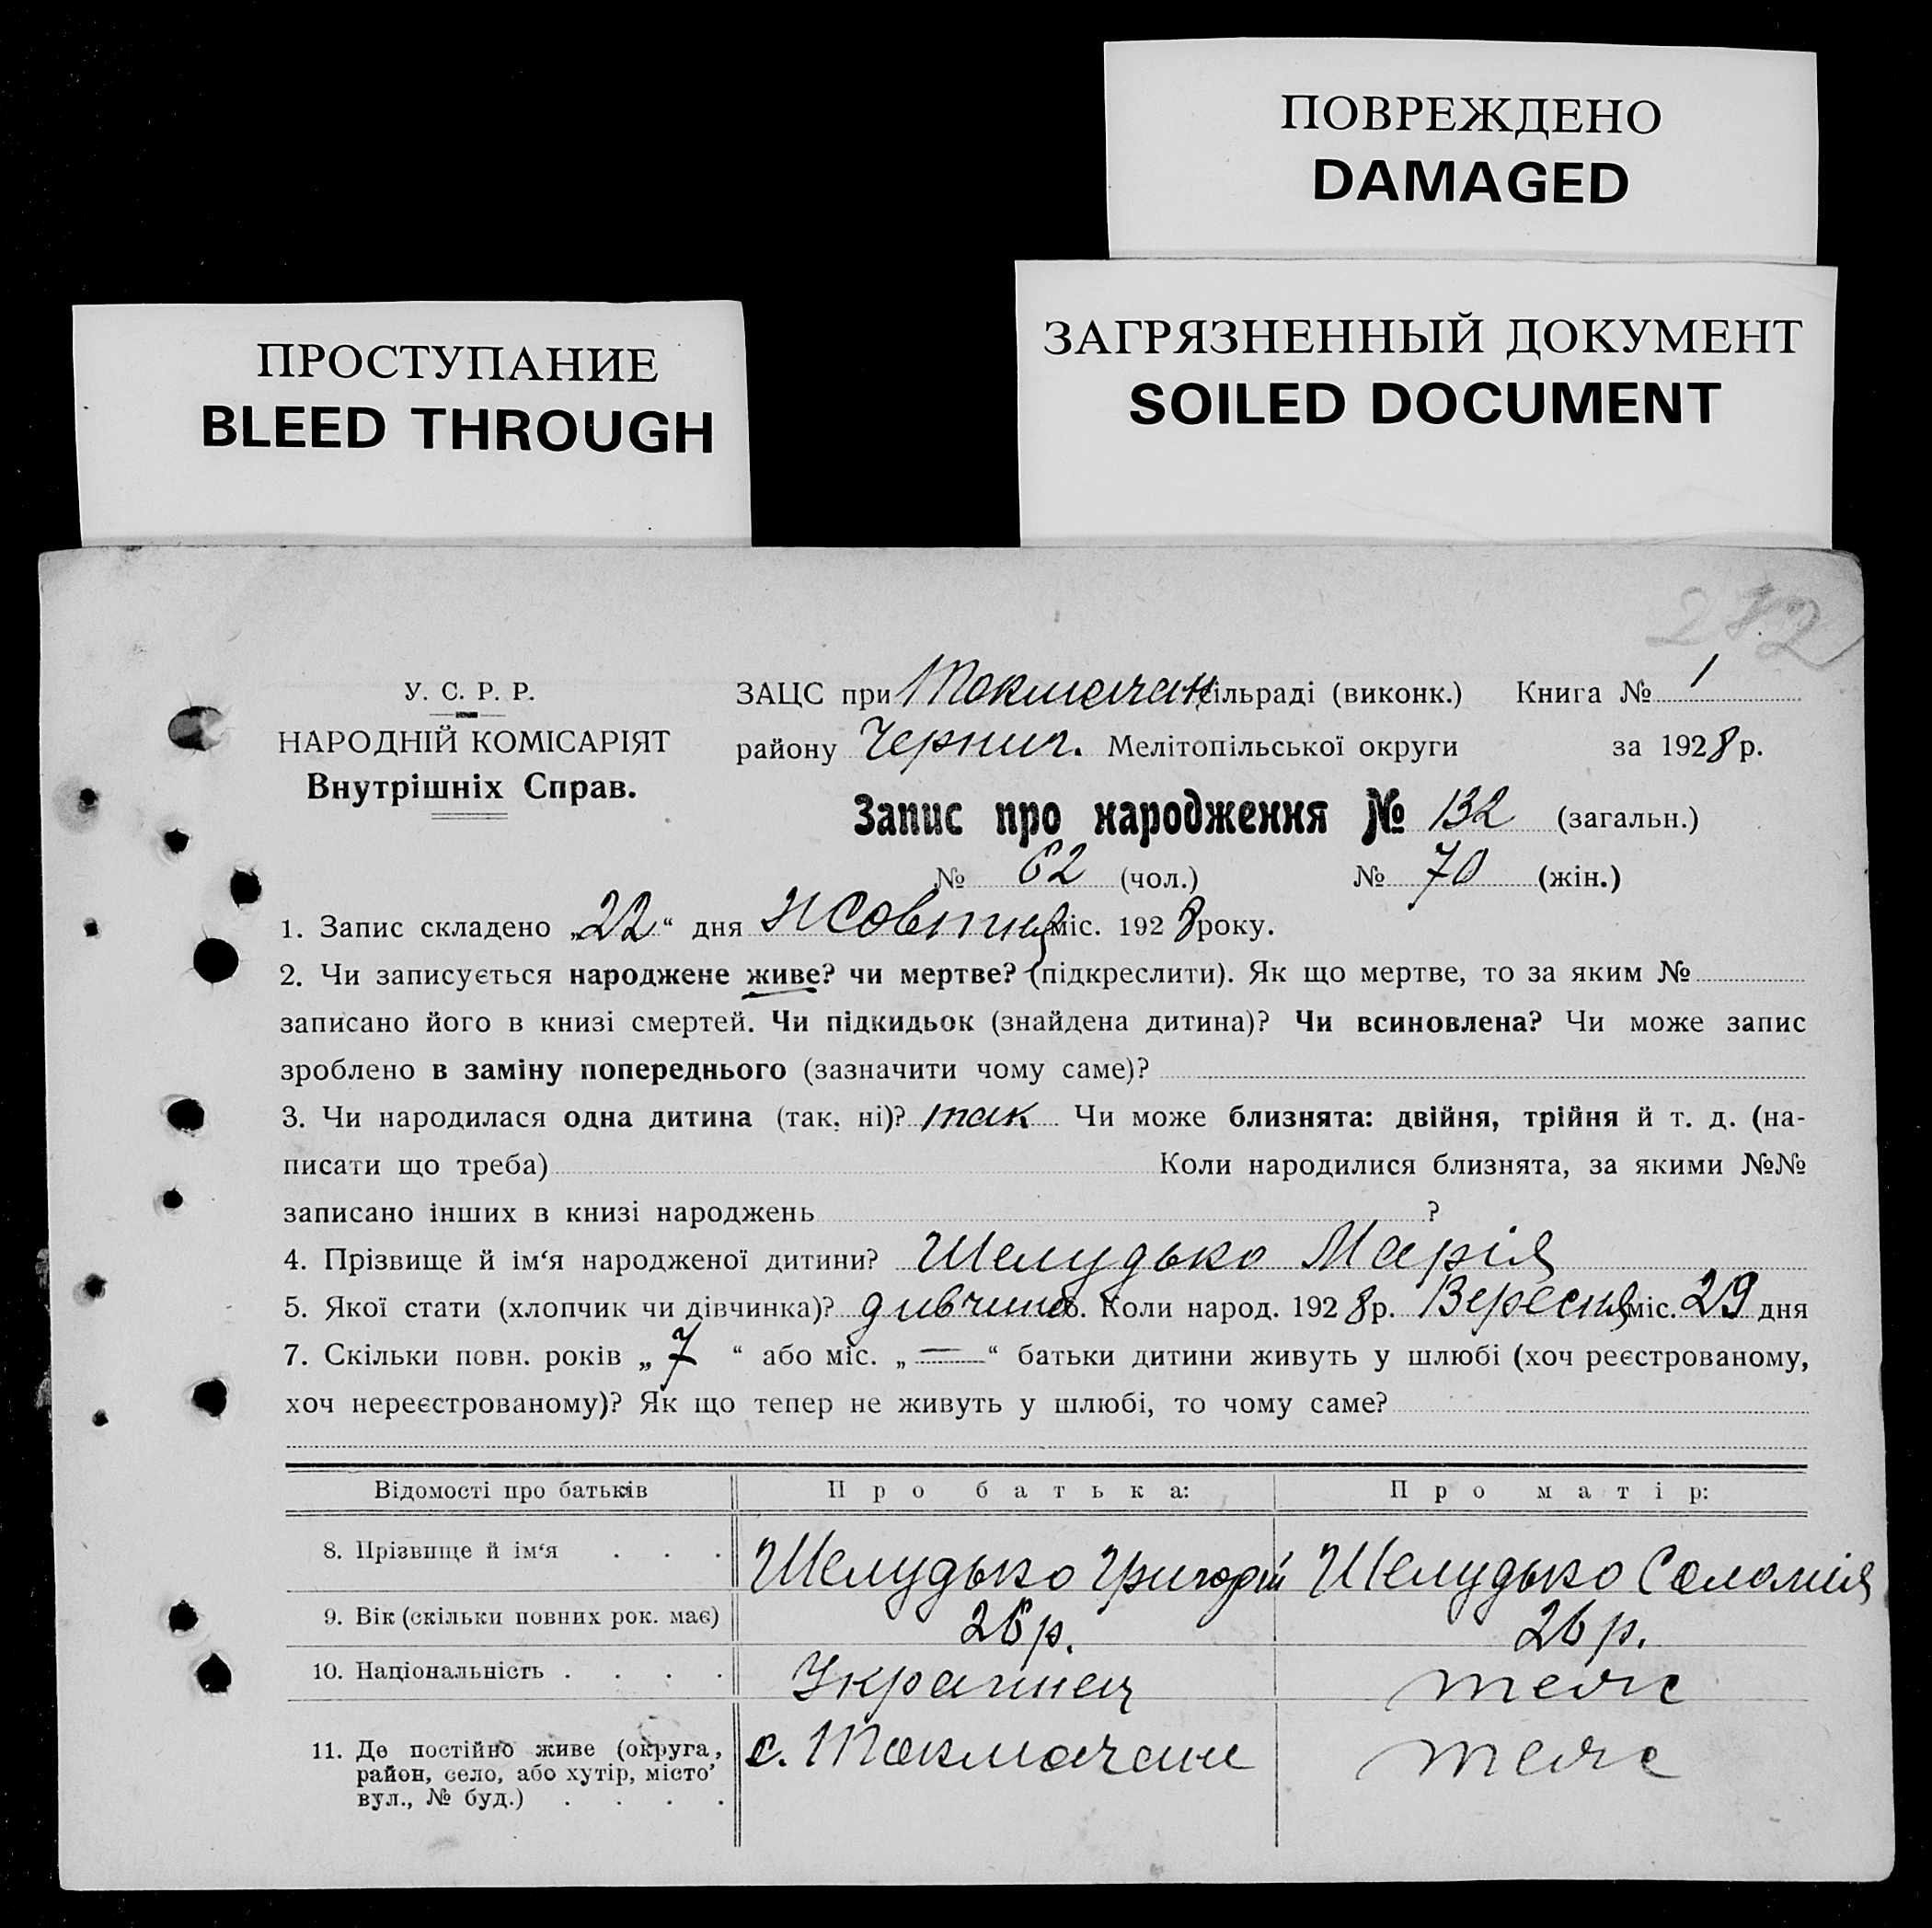 ПОВРЕЖДЕНО
DAMAGED
ПРОСТУПАНИЕ
BLEED THROUGH
ЗАГРЯЗНЕННЫЙ ДОКУМЕНТ
SOILED DOCUMENT
У. С. Р. Р.
НАРОДНІЙ КОМІСАРІЯТ
Внутрішніх Справ.
ЗАЦС при Токмачан сільраді (виконк.) Книга № 1
району Черниг. Мелітопільської округи за 1928 р.
Запис про народження № 132 (загальн.)
№ 62 (чол.) № 70 (жін.)
1. Запис складено „22“ дня Жовтня міс. 1928 року.
2. Чи записується народжене живе? чи мертве? (підкреслити). Як що мертве, то за яким №
записано його в книзі смертей. Чи підкидьок (знайдена дитина)? Чи всиновлена? Чи може запис
зроблено в заміну попереднього (зазначити чому саме)?
3. Чи народилася одна дитина (так, ні)? так Чи може близнята: двійня, трійня й т. д. (на-
писати що треба) Коли народилися близнята, за якими №№
записано інших в книзі народжень ?
4. Прізвище й ім‘я народженої дитини? Шелудько Марія
5. Якої стати (хлопчик чи дівчинка)? дивчина 6. Коли народ. 1928 р. Вересня міс. 29 дня
7. Скільки повн. років „7“ або міс. „—“ батьки дитини живуть у шлюбі (хоч реєстрованому,
хоч нереєстрованому)? Як що тепер не живуть у шлюбі, то чому саме?
Відомості про батьків Про батька: Про матір:
8. Прізвище й ім‘я . . . Шелудько Григорій Шелудько Соломія
9. Вік (скільки повних рок. має) 26 р. 26 р.
10. Національність . . . . Українец теж
11. Де постійно живе (округа, с. Токмачани теж
район, село, або хутір, місто’
вул., № буд.) . . . .